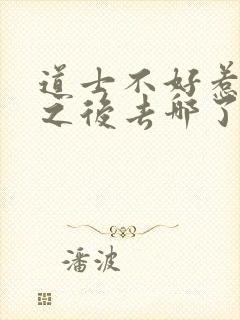 道士不好惹
之後去哪了
潘波